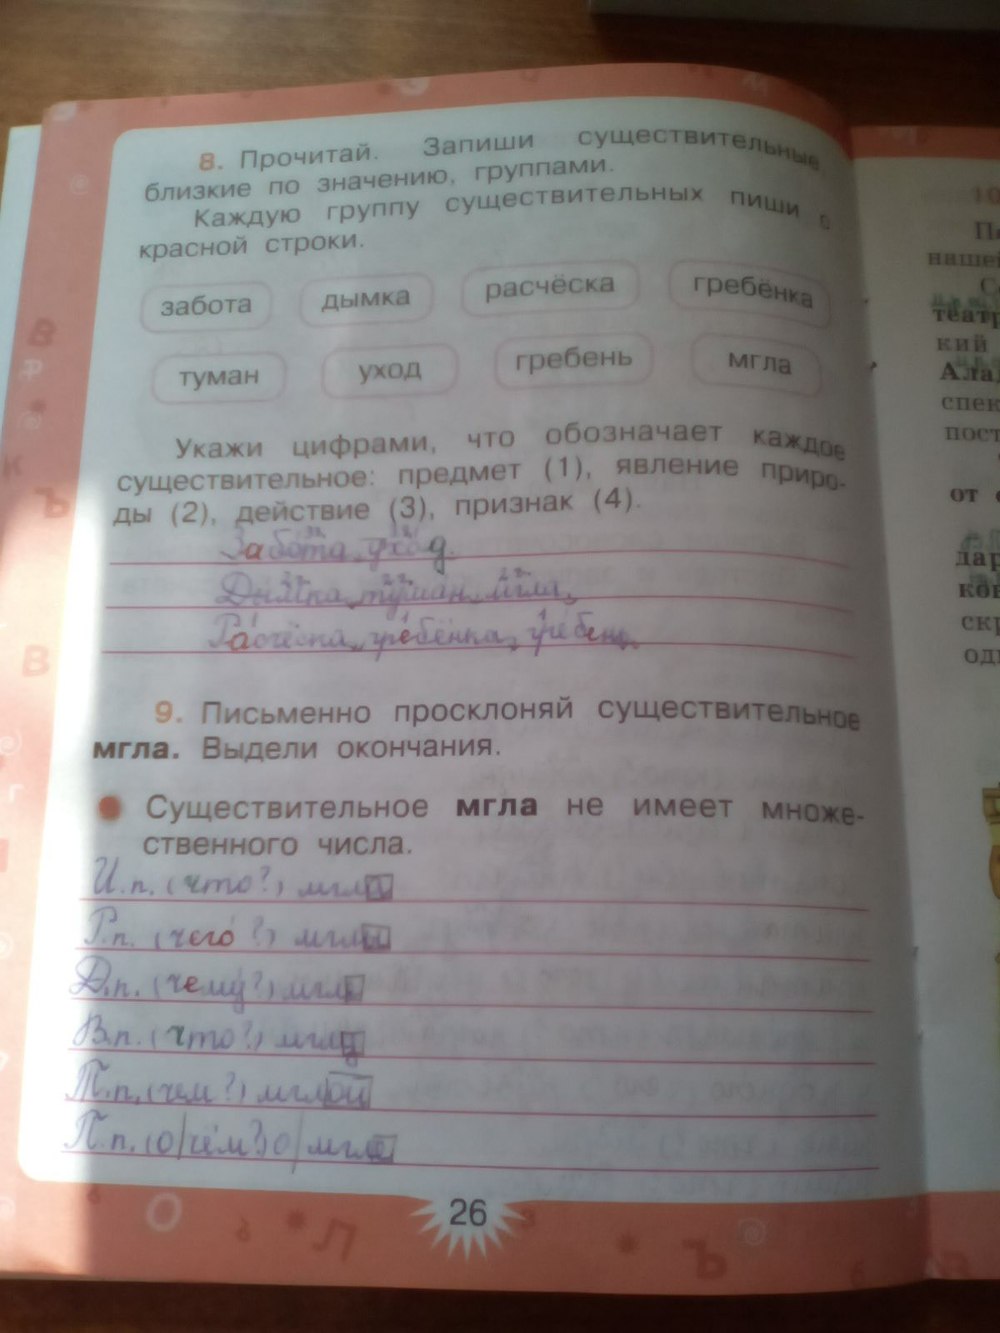 8. Прочитай. Запиши существительные
близкие по значению, группами.
Каждую группу существительных пиши с
красной строки.
забота дымка расчёска гребёнка
туман уход гребень мгла
Укажи цифрами, что обозначает каждое
существительное: предмет (1), явление приро-
ды (2), действие (3), признак (4).
Забота, уход.
Дымка, туман, мгла.
Расчёска, гребёнка, гребень.
9. Письменно просклоняй существительное
мгла. Выдели окончания.
Существительное мгла не имеет множе-
ственного числа.
И.п. (что?) мгла
Р.п. (чего?) мглы
Д.п. (чему?) мгле
В.п. (что?) мглу
Т.п. (чем?) мглой
П.п. (о|чём?) о|мгле
26
10
нашей
театр
кий
Алад
спек
пост
от
дар
кон
скр
оди